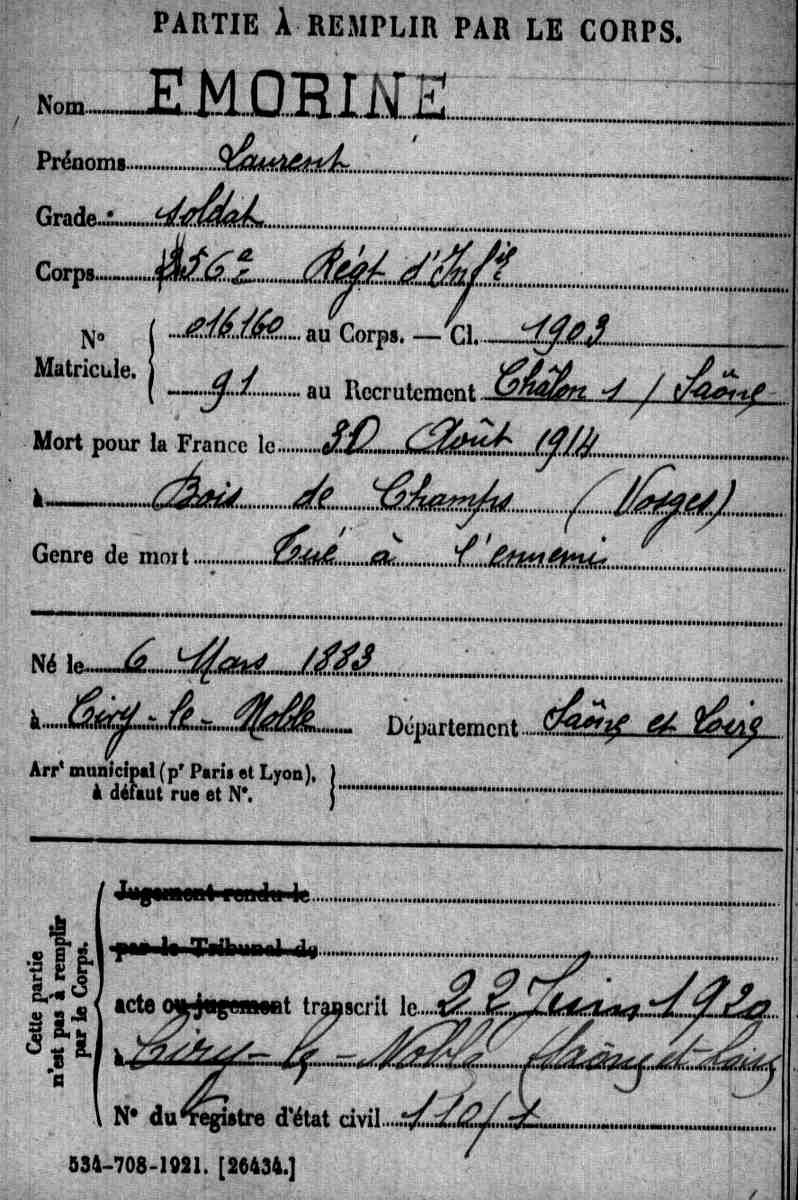 PARTIE À REMPLIR PAR LE CORPS.
Nom EMORINE
Prénoms Laurent
Grade soldat
Corps 56e Régt d'Infie
No Matricule. 016160 au Corps. — Cl. 1903
91 au Recrutement Châlon s/ Saône
Mort pour la France le 30 Août 1914
à Bois de Champs (Vosges)
Genre de mort Tué à l'ennemi
Né le 6 Mars 1883
à Ciry-le-Noble Département Saône et Loire
Arrt municipal (pr Paris et Lyon),
à défaut rue et No.
Cette partie n'est pas à remplir par le Corps.
Jugement rendu le
par le Tribunal de
acte ou jugement transcrit le 22 Juin 1920
à Ciry-le-Noble (Saône et Loire
No du registre d'état civil 110/1
534-708-1921. [26434.]